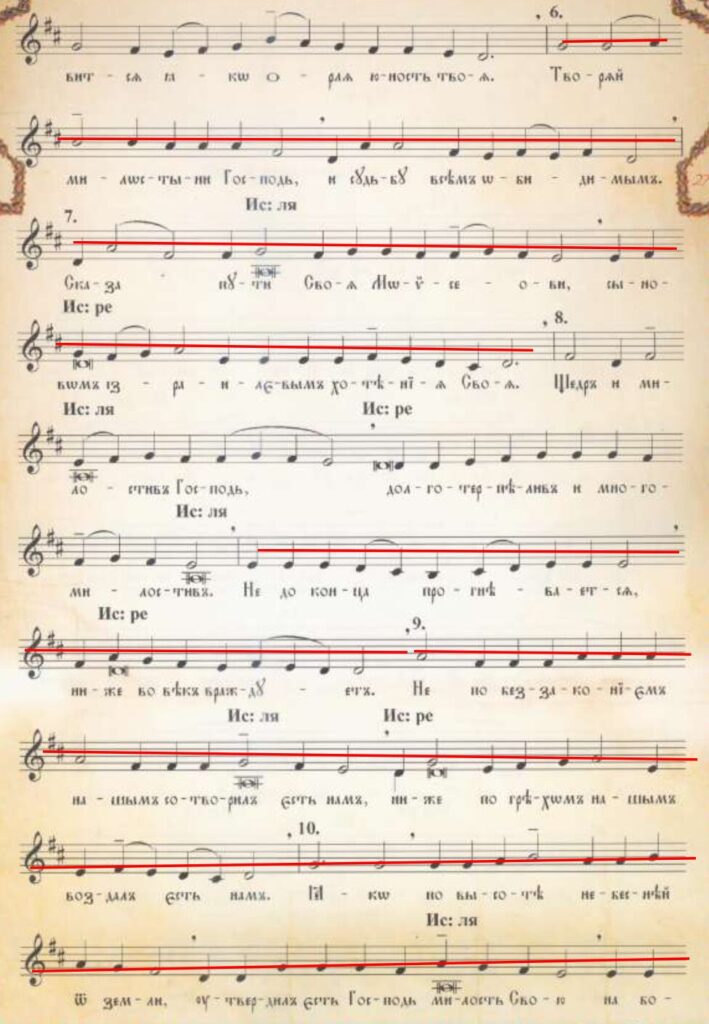 6.
вит - сѧ ꙗ - кѡ о - рлѧ ю-ность твоѧ. Творѧй
ми - лѡс-ты-ни Гос-подь, и сꙋдь-бꙋ всѣмъ ѡ-би - ди-мымъ.
27
Ис: ля
7.
Ска-за пꙋ-ти Сво-ѧ Мѡ-ѵ̈-се - о-ви, сы-но-
Ис: ре
8.
вѡмъ із - ра - и - лєвымъ хо-тѣ-нї-ѧ Сво-ѧ. Щедръ и ми-
Ис: ля Ис: ре
ло - стивъ Гос-подь, дол-го-тер-пѣ-ливъ и мно-го-
Ис: ля
ми - лос-тивъ. Не до кон-ца про-гнѣ - ва-ет-сѧ,
Ис: ре 9.
ни-же во вѣкъ враж-дꙋ - етъ. Не по без-за-ко-нї-ємъ
Ис: ля Ис: ре
на-шымъ со-тво-рилъ єсть намъ, ни-же по грѣ-хѡмъ на-шымъ
10.
воз-далъ єсть намъ. Ꙗ - кѡ по вы-со-тѣ не-бес-нѣй
Ис: ля
ѿ зем-ли, ѹ-твер-дилъ єсть Гос-подь ми-лость Сво-ю на бо-